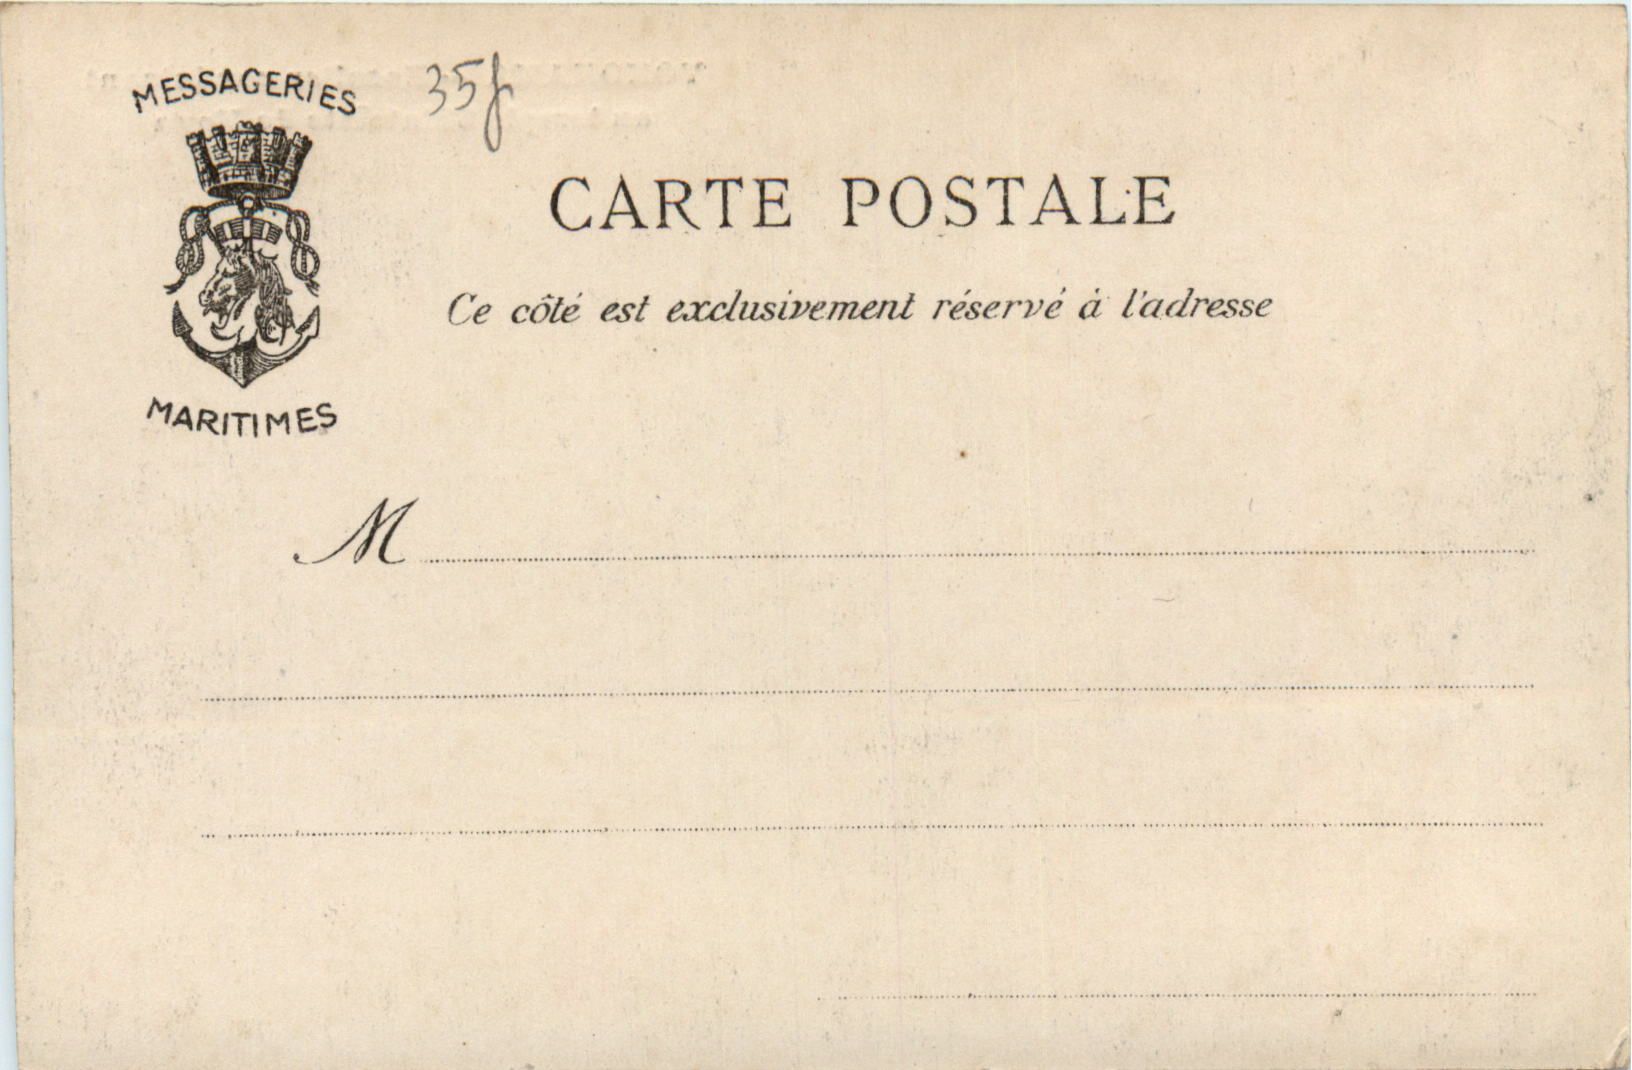 MESSAGERIES
MARITIMES
35f
CARTE POSTALE
Ce côté est exclusivement réservé à l'adresse
M